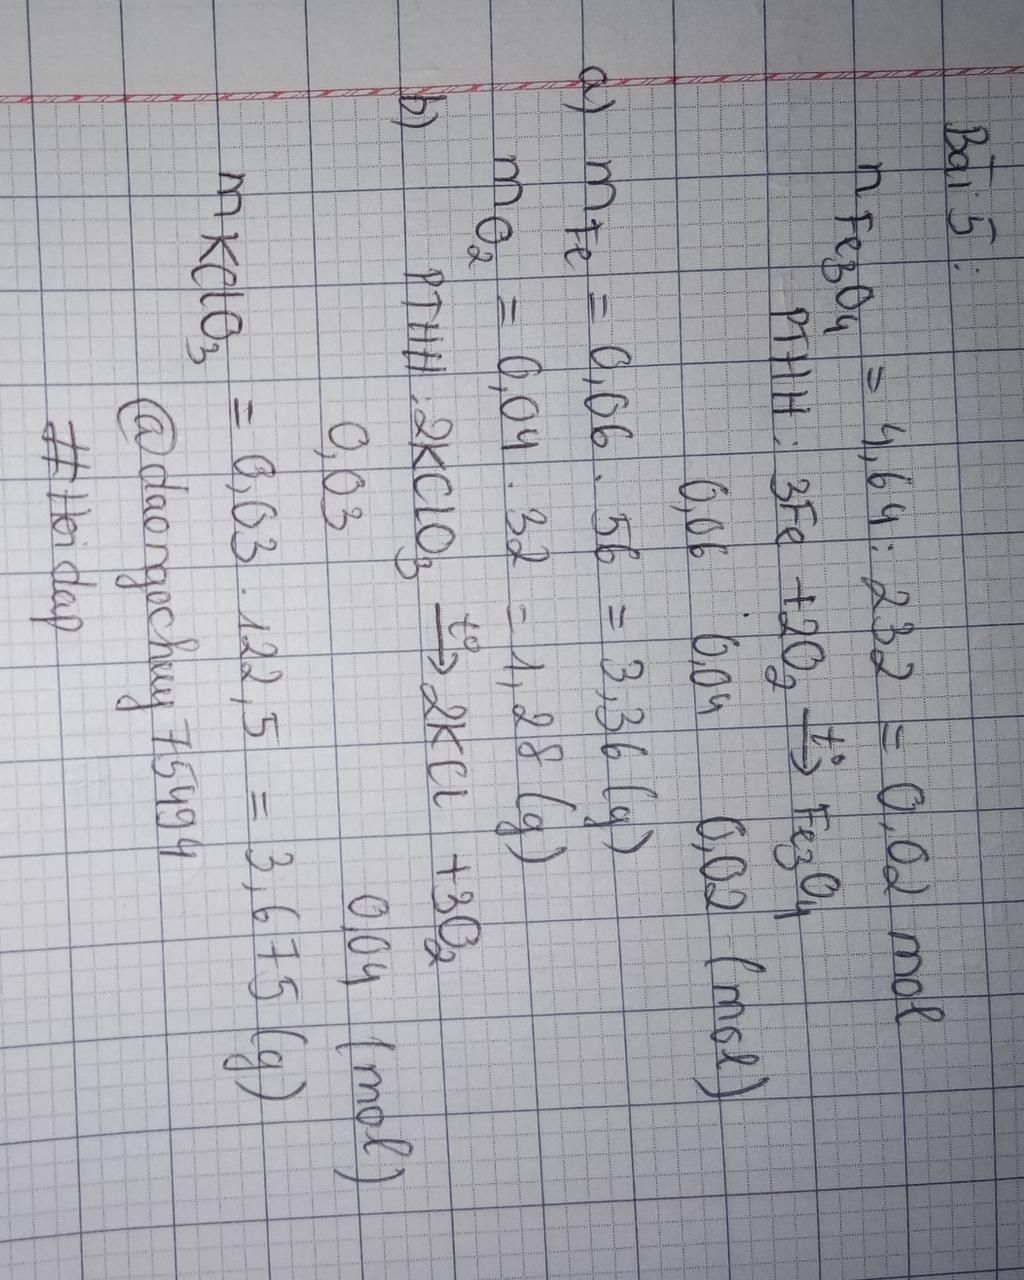 Bài 5:
nFe3O4 = 4,64 : 232 = 0,02 mol
PTHH: 3Fe + 2O2 t°→ Fe3O4
0,06 0,04 0,02 (mol)
a) mFe = 0,06 . 56 = 3,36 (g)
mO2 = 0,04 . 32 = 1,28 (g)
b) PTHH: 2KClO3 t°→ 2KCl + 3O2
0,03 0,04 (mol)
mKClO3 = 0,03 . 122,5 = 3,675 (g)
@daongochuy75494
#Hoidap